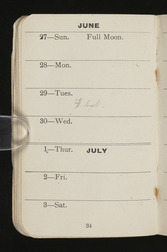 JUNE
27—Sun. Full Moon.
28—Mon.
29—Tues.
30—Wed.
1—Thur. JULY
2—Fri.
3—Sat.
34